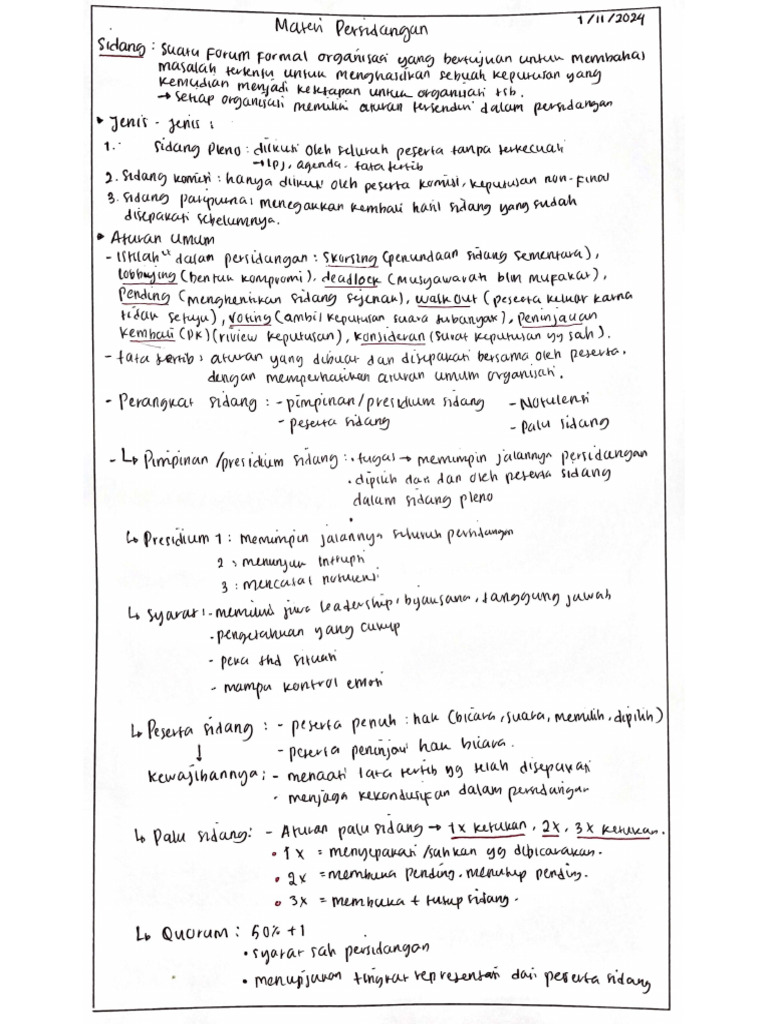 Materi Persidangan
1/11/2024
Sidang : Suatu Forum Formal organisasi yang bertujuan untuk membahas
masalah tertentu untuk menghasilkan sebuah keputusan yang
kemudian menjadi ketetapan untuk organisasi tsb.
→ setiap organisasi memiliki aturan tersendiri dalam persidangan
• Jenis - jenis :
1. Sidang Pleno : diikuti oleh seluruh peserta tanpa terkecuali
→ LPJ, agenda, tata tertib
2. Sidang komisi : hanya diikuti oleh peserta komisi, keputusan non-final
3. Sidang paripurna : menegaskan kembali hasil sidang yang sudah
disepakati sebelumnya.
• Aturan Umum
- Istilah" dalam persidangan : Skorsing (penundaan sidang sementara),
lobbying (bentuk kompromi), deadlock (musyawarah blm mufakat),
Pending (menghentikan sidang sejenak), walk out (peserta keluar karna
tidak setuju), voting (ambil keputusan suara terbanyak), peninjauan
kembali (PK) (riview keputusan), konsideran (surat keputusan yg sah).
- tata tertib : aturan yang dibuat dan disepakati bersama oleh peserta.
dengan memperhatikan aturan umum organisasi.
- Perangkat sidang : - pimpinan/presidium sidang - Notulensi
- peserta sidang - palu sidang
- ↳ Pimpinan /presidium sidang : • tugas → memimpin jalannya persidangan
• dipilih dari dan oleh peserta sidang
dalam sidang pleno
↳ Presidium 1 : memimpin jalannya seluruh persidangan
2 : menunjuk intrupsi
3 : mencatat notulensi
↳ Syarat : - memiliki jiwa leadership, bijaksana, tanggung jawab
- pengetahuan yang cukup
- peka thd situasi
- mampu kontrol emosi
↳ Peserta sidang : - peserta penuh : hak (bicara, suara, memilih, dipilih)
↓ - peserta peninjau : hak bicara.
kewajibannya : - menaati tata tertib yg telah disepakati
- menjaga kekondusifan dalam persidangan
↳ Palu sidang : - Aturan palu sidang → 1x ketukan, 2x, 3x ketukan.
• 1x = menyepakati /sahkan yg dibicarakan.
• 2x = membuka pending, menutup pending.
• 3x = membuka + tutup sidang.
↳ Quorum : 50% +1
• syarat sah persidangan
• menunjukan tingkat representasi dari peserta sidang